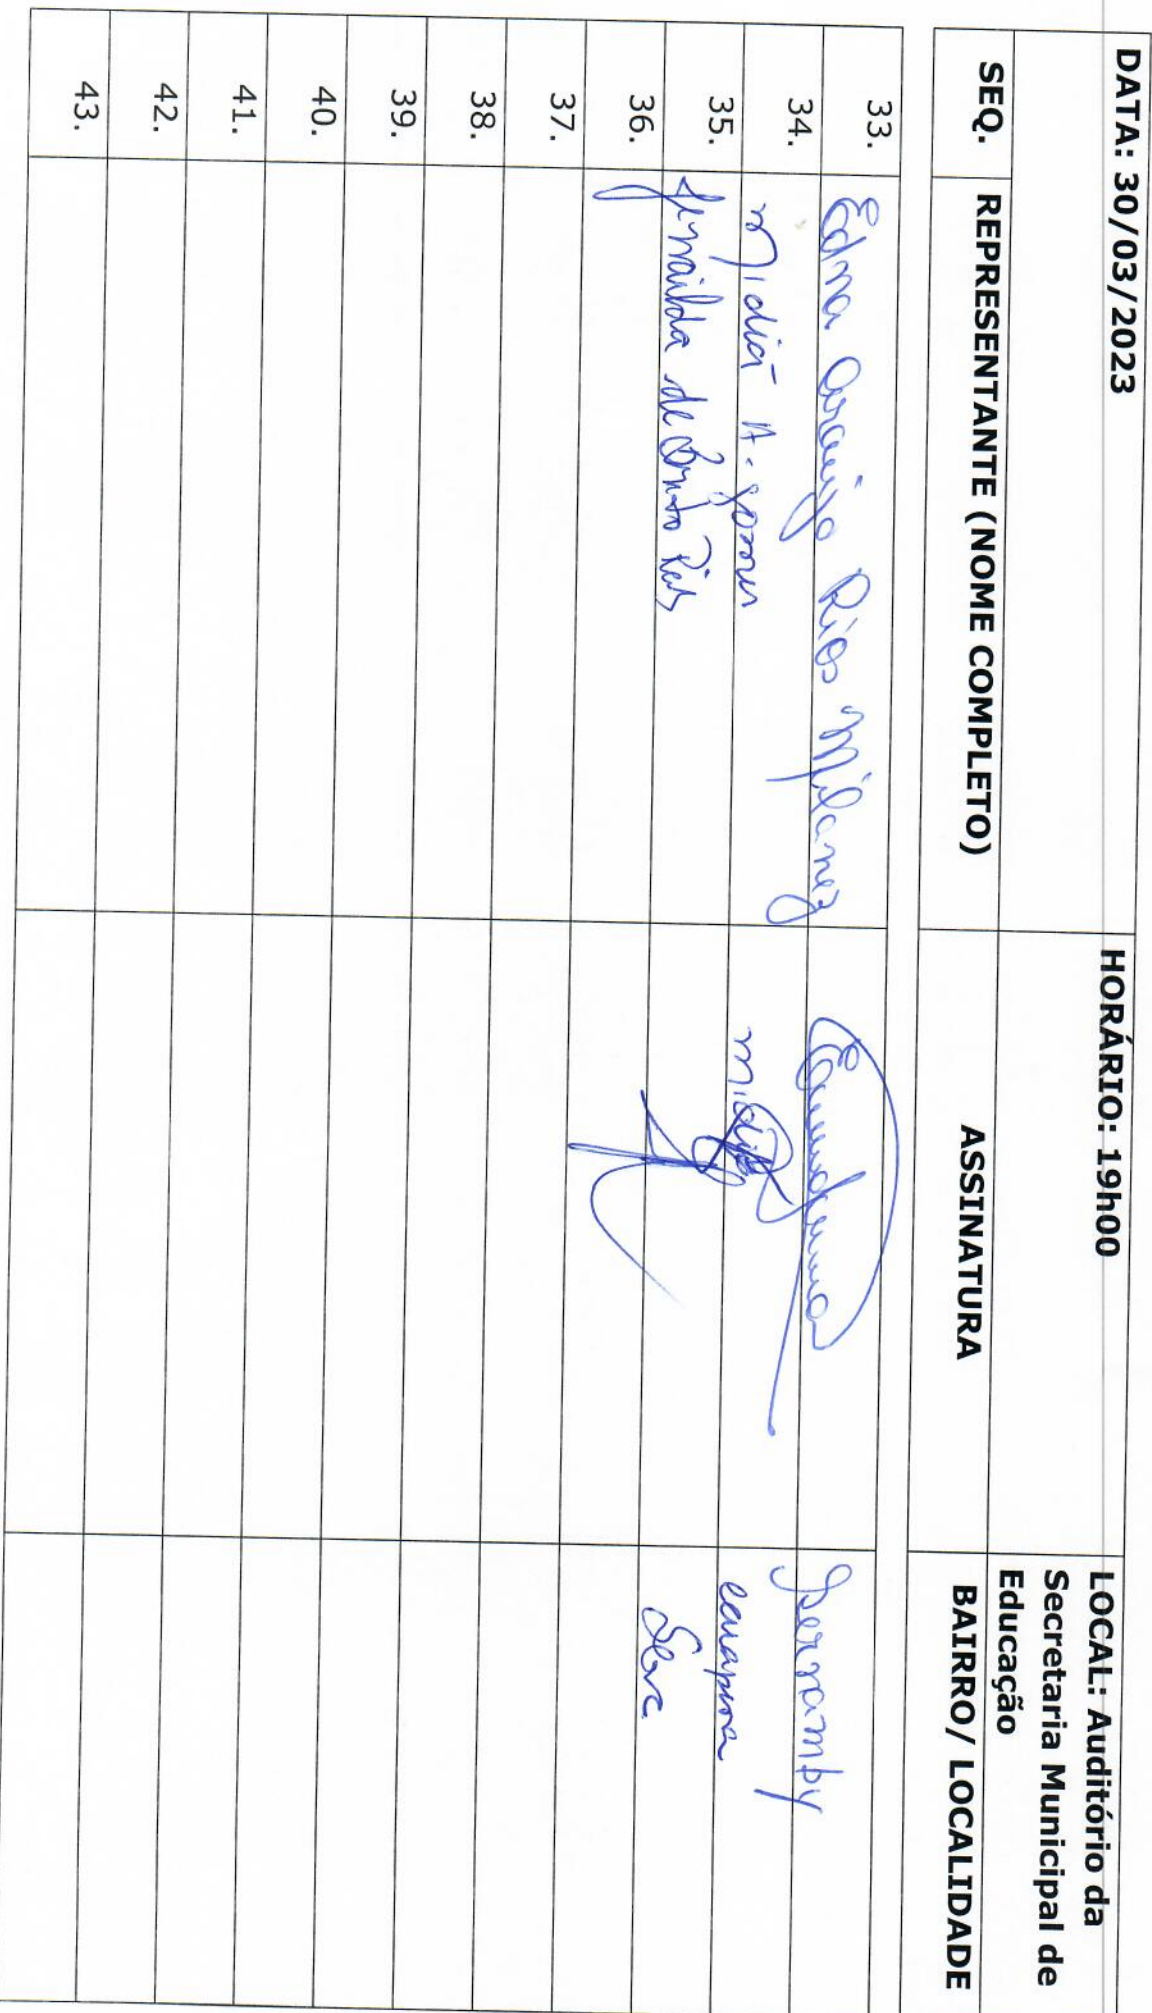 DATA: 30/03/2023 HORÁRIO: 19h00 LOCAL: Auditório da
Secretaria Municipal de
Educação
SEQ. REPRESENTANTE (NOME COMPLETO) ASSINATURA BAIRRO/ LOCALIDADE
33. Edna Araujo Rios Milanez
34. Midiã A. gomes
35. de Rios
36.
37.
38.
39.
40.
41.
42.
43.